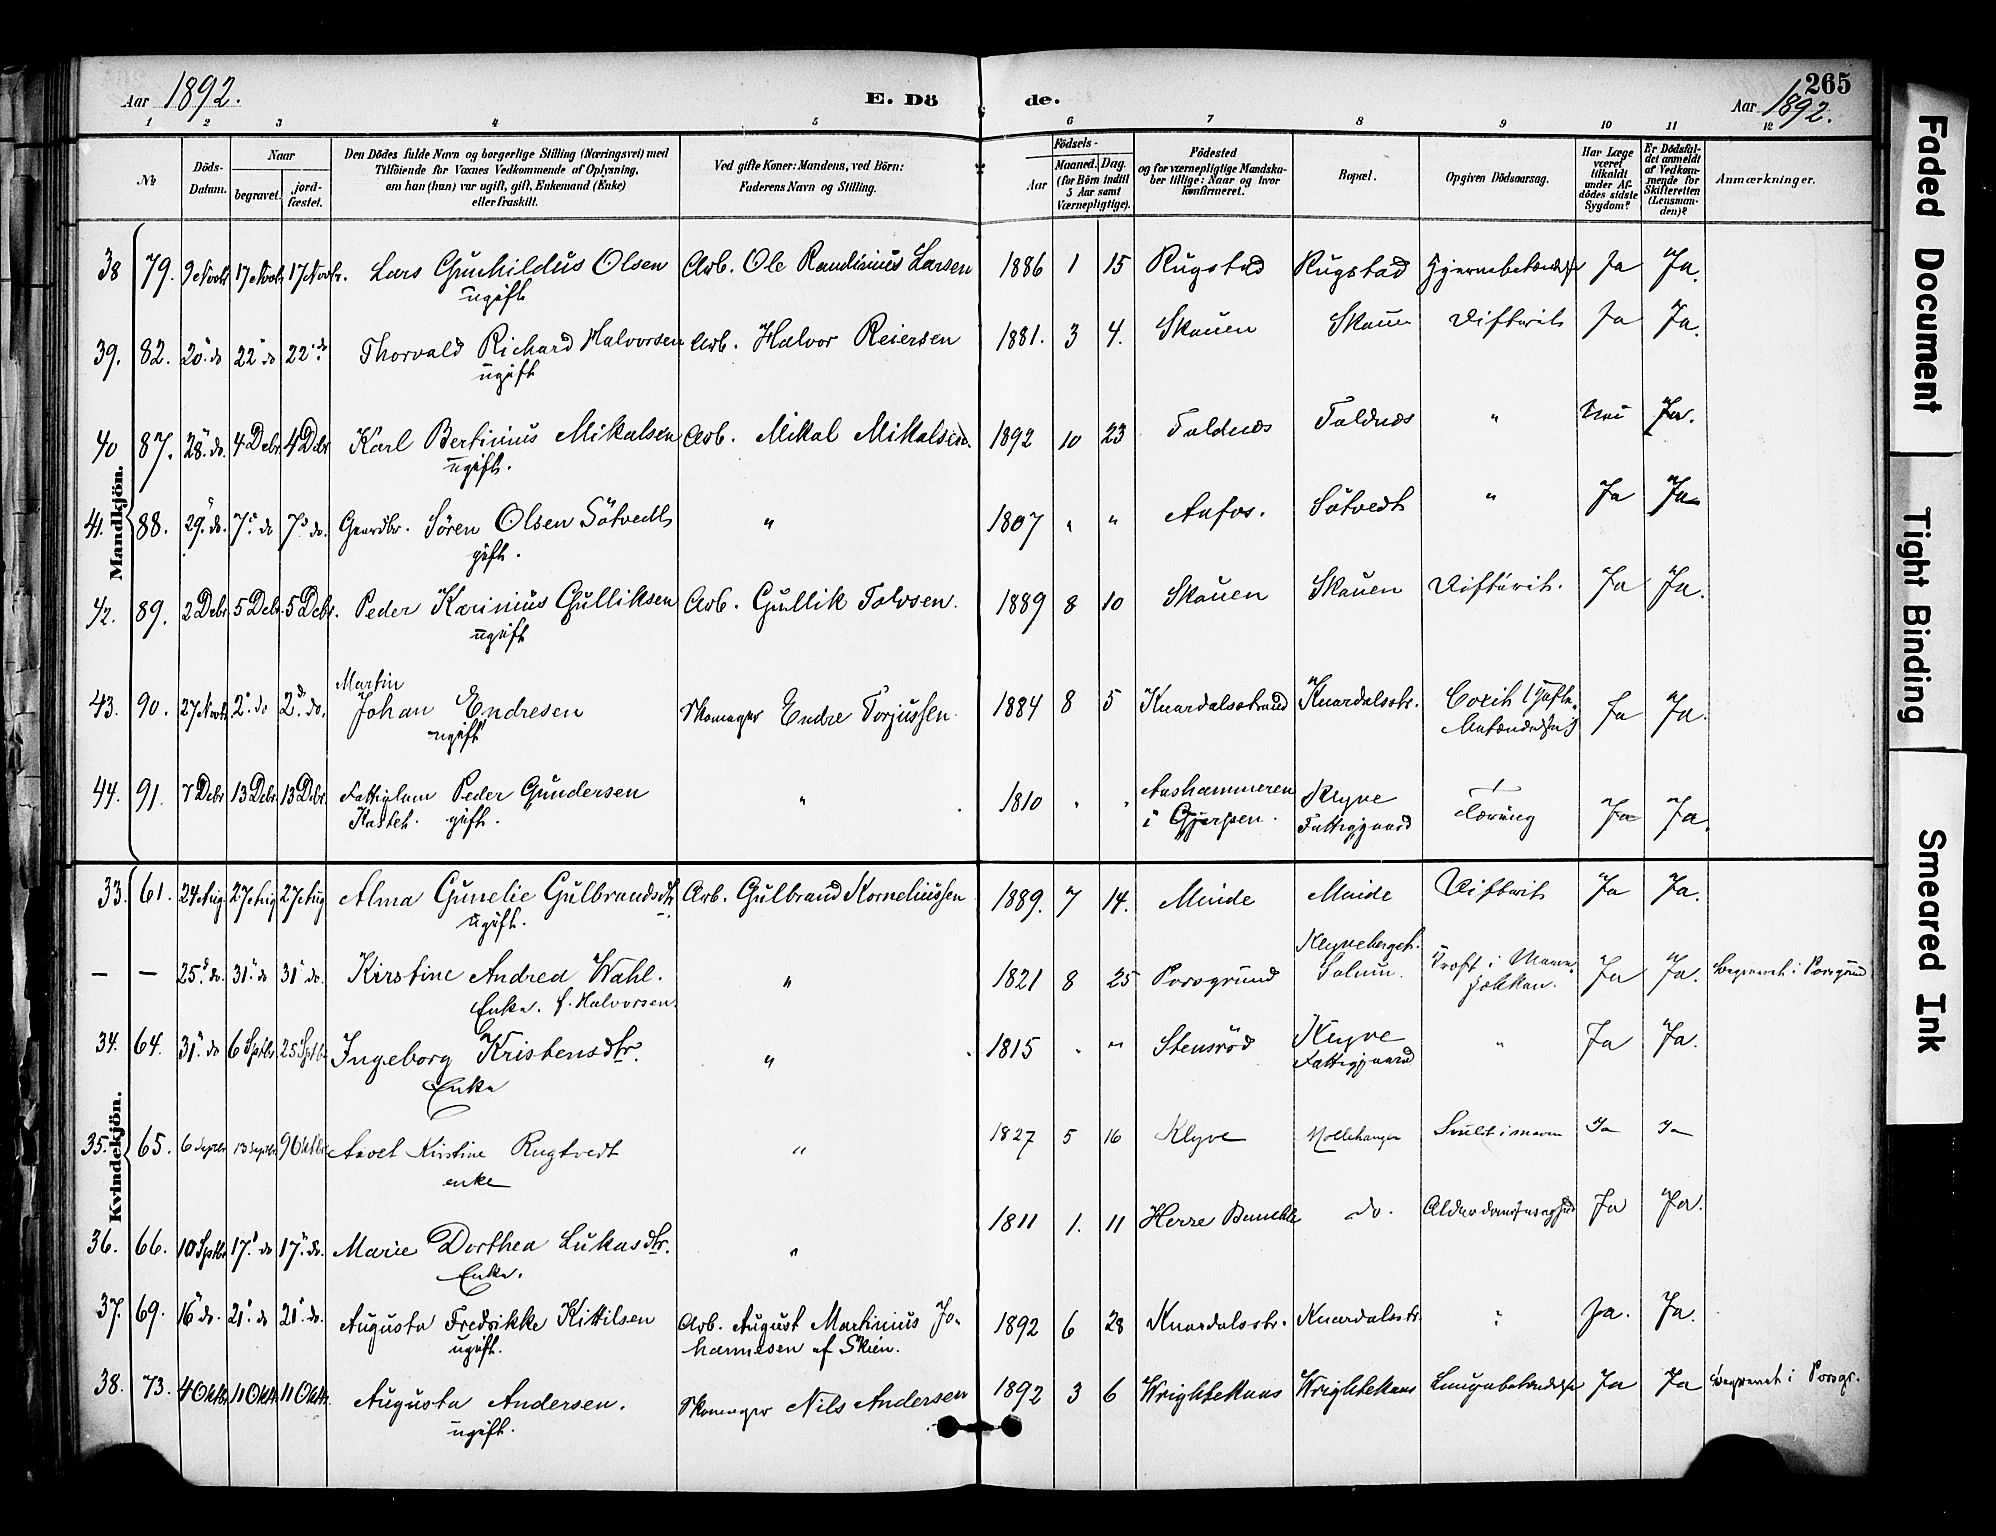 Aar 1892.
E. Dö
de.
265
Aar 1892.
1 2 3 4 5 6 7 8 9 10 11 12
№
Döds-Datum.
Naar
begravet.
jord-fæstet.
Den Dödes fulde Navn og borgerlige Stilling (Næringsvei) med
Tilföiende for Voxnes Vedkommende af Oplysning,
om han (hun) var ugift, gift, Enkemand (Enke)
eller fraskilt.
Ved gifte Koner: Mandens, ved Börn:
Faderens Navn og Stilling.
Födsels-
Aar
Maaned. Dag.
(for Börn indtil
5 Aar samt
Værnepligtige).
Födested
og for værnepligtige Mandska-
ber tillige: Naar og hvor
konfirmeret.
Bopæl.
Opgiven Dödsaarsag.
Har Læge
været
tilkaldt
under Af-
dödes sidste
Sygdom?
Er Dödsfal-
det anmeldt
af Vedkom-
mende for
Skifteretten
(Lensman-
den)?
Anmærkninger.
Mandkjön.
38 79. 9 Novbr 17 Novbr 17 Novbr. Lars Gunhildus Olsen Arb. Ole Randinius Larsen 1886 1 15 Rugstad Rugstad Hjernebetændelse Ja Ja.
ugift
39. 82. 20" do 22" do 22" do Thorvald Richard Halvorsen Arb. Halvor Reiersen 1881. 3 4. Skauen Skauen Difterit Ja Ja.
ugift
40 87. 28" do. 4 Debr 4 Debr Karl Bertinius Mikalsen Arb. Mikal Mikalsen. 1892 10 23 Foldnæs Foldnæs " Nei Ja.
ugift.
41. 88. 29" do. 7" do 7" do. Gaardbr. Sören Olsen Sötvedt " 1807 " " Aafos. Sötvedt " Ja Ja
gift.
42. 89. 2 Debr 5 Debr. 5 Debr. Peder Karinius Gulliksen Arb. Gullik Tolvsen. 1889 8 10 Skauen Skauen Difterit. Ja Ja.
ugift
Martin
43. 90. 27 Novbr 2" do 2" do. Johan Endresen Skomager Endre Torjussen. 1884 8 5 Knardalsstrand Knardalsstr. Coxit (Hofte- Ja Ja.
ugift betændelse)
44. 91. 7 Debr 13 Debr. 13 Debr. Fattiglem Peder Gundersen " 1810 " " Aashammeren Klyve Tæring Ja Ja.
Kasteh. gift. i Gjerpen. Fattiggaard
Kvindekjön.
33. 61. 24 Aug 27 Aug 27 Aug Alma Gunelie Gulbrandsdtr. Arb. Gulbrand Korneliussen 1889. 7 14. Minde Minde Difterit Ja Ja.
ugift.
— — 25" do. 31" do 31" do. Kirstine Andrea Wahl. " 1821 8 25 Porsgrund Klyveberget. Kræft i Mave- Ja Ja. begravet i Porsgrund
Enke. f. Halvorsen. Solum. sækken.
34. 64. 31" do 6 Sptbr 25 Sptbr Ingeborg Kristensdtr. " 1815 " " Stensröd Klyve " Ja Ja.
Enke Fattiggaard
35. 65. 6 Septbr 13 Septbr 9 Oktbr Aavet Kirstine Rugtvedt " 1827 5 16 Klyve Möllehaugen Svulst i maven Ja Ja
enke
36. 66. 10 Sptbr 17" do 17" do. Marie Dorthea Lukasdtr. " 1811 1. 11 Herre Bamble do. Alderdomssvaghed Ja Ja.
Enke.
37. 69. 16" do. 21" do 21" do. Augusta Fredrikke Kittilsen Arb. August Martinius Jo- 1892 6 28 Knardalsstr. Knardalsstr. " Ja. Ja.
ugift. hannesen af Skien.
38. 73. 4 Oktbr 11 Oktbr 11 Oktbr. Augusta Andersen. Skomager Nils Andersen 1892 3 6 Wrightekaas Wrightekaas Lungebetændelse Ja Ja begravet i Porsgr.
ugift.
Faded Document
Tight Binding
Smeared Ink